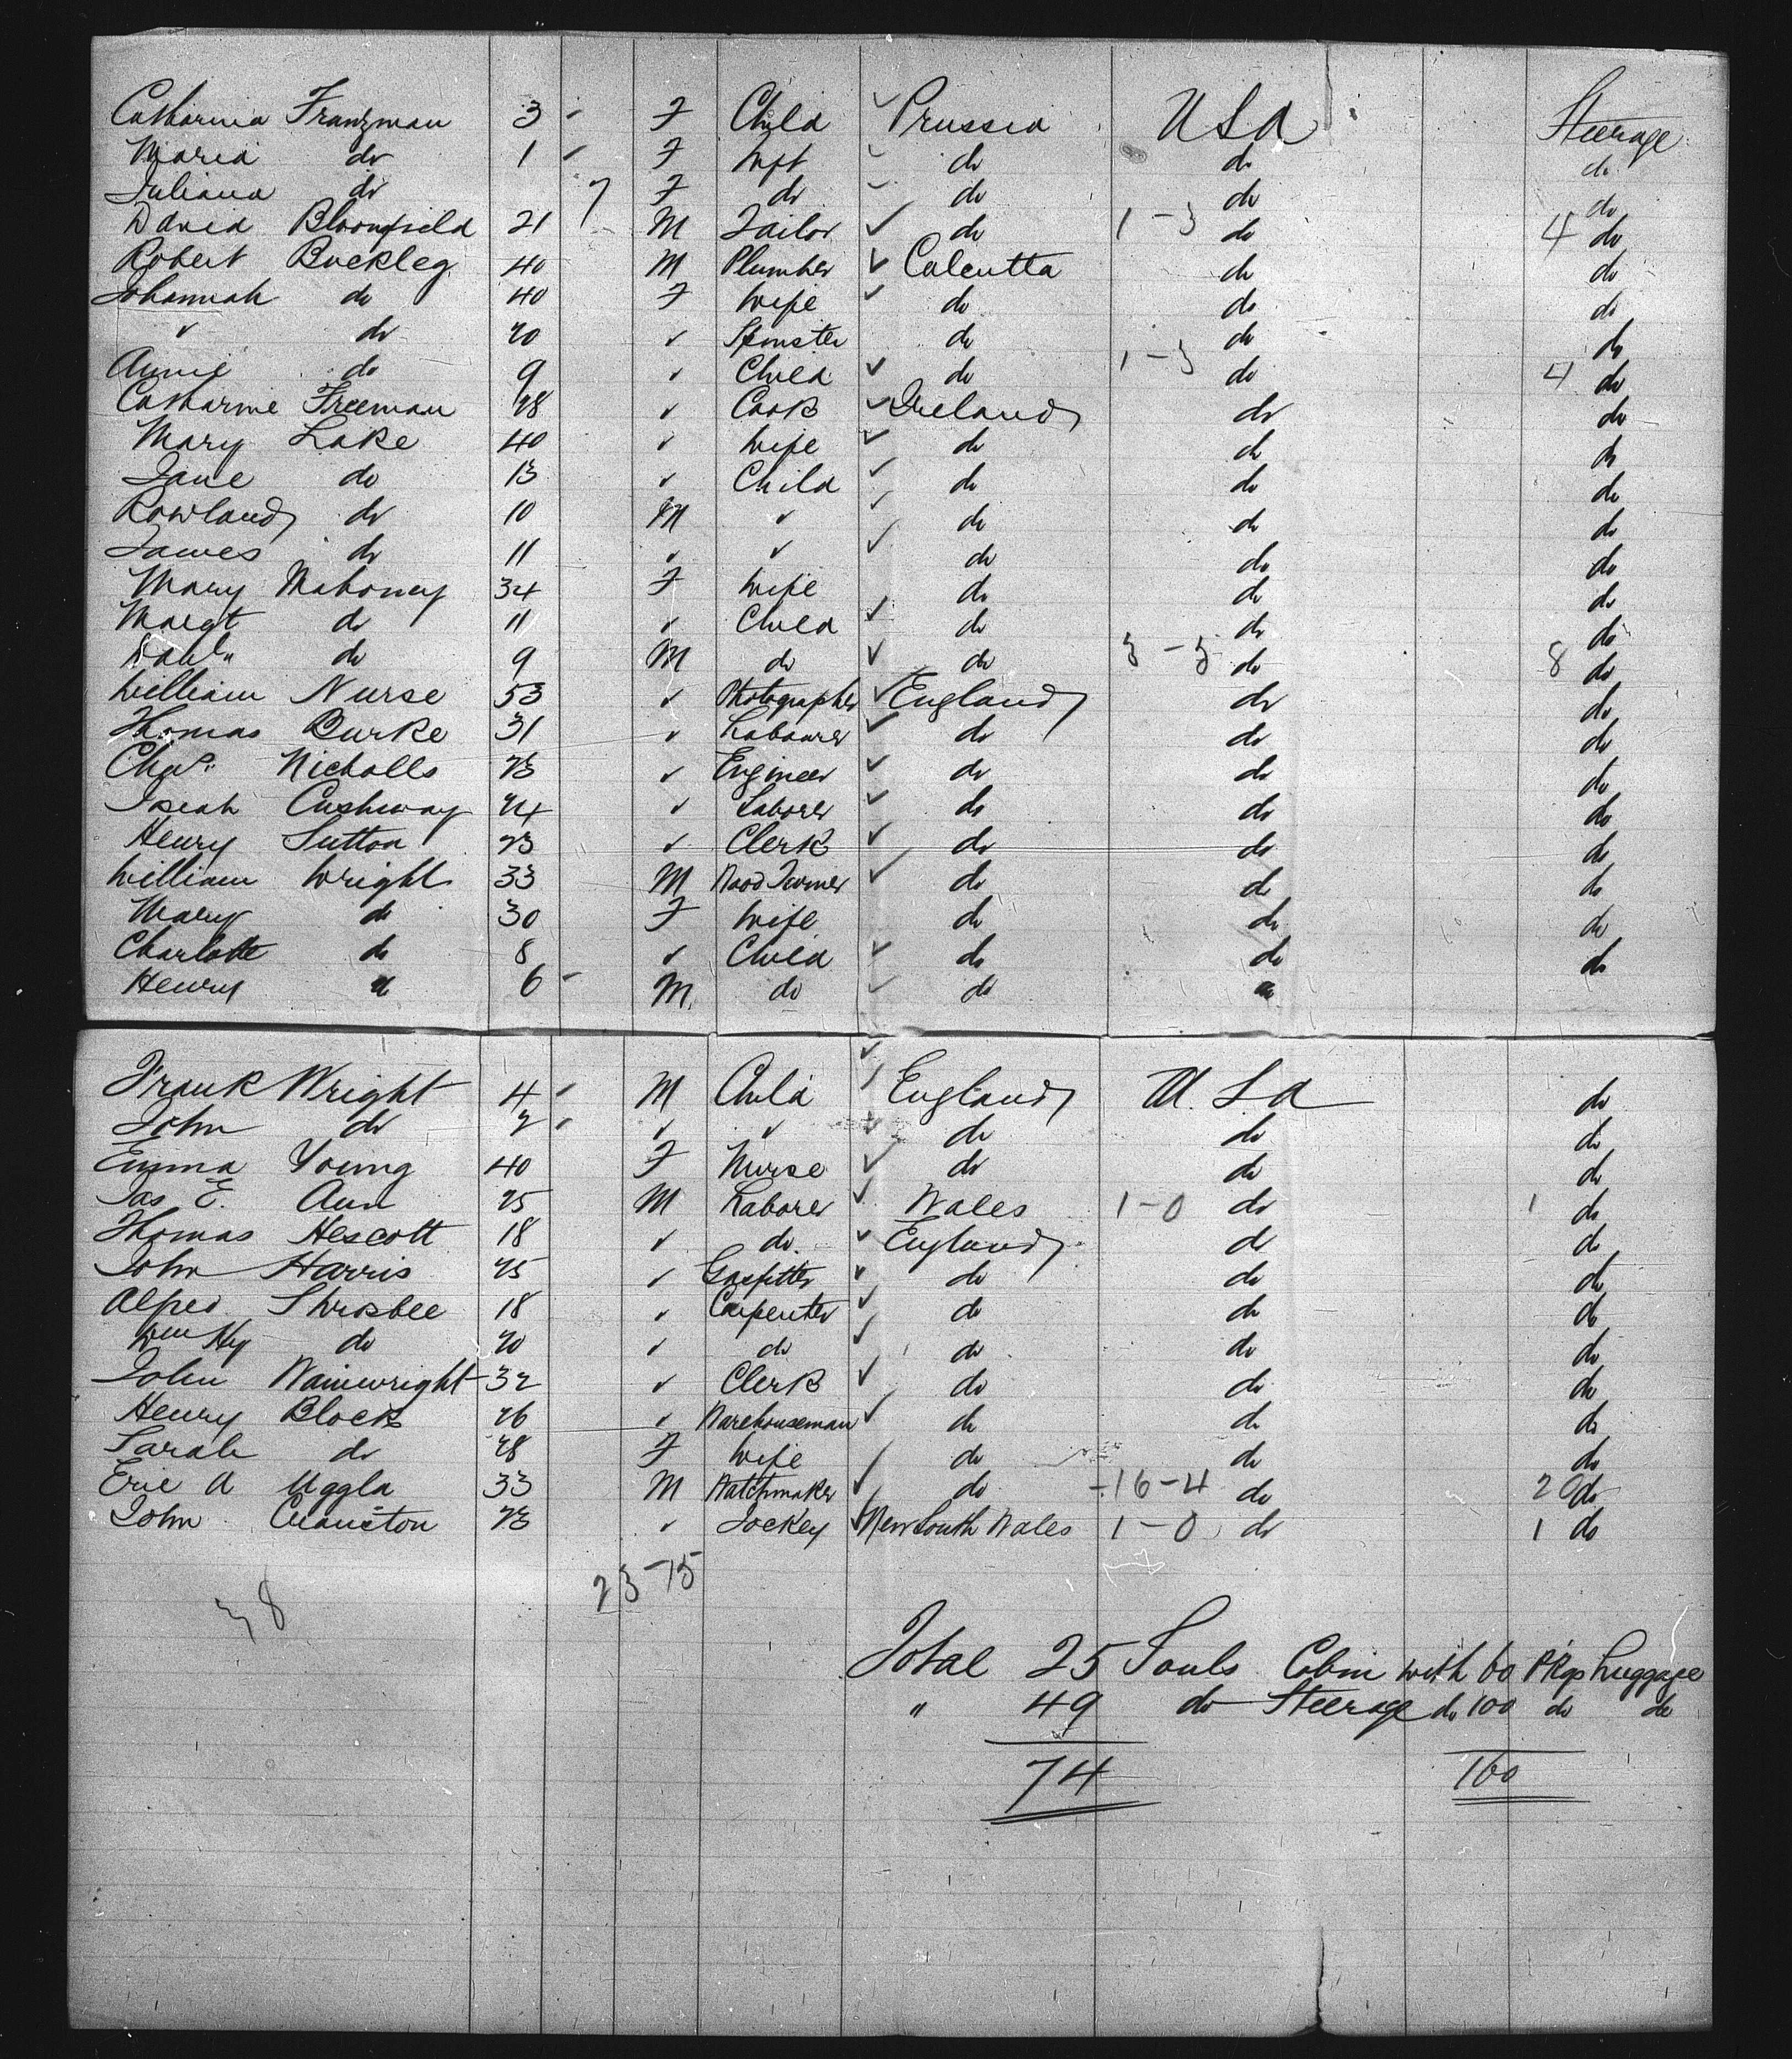 Catharina Franzman 3 - F Child ✓ Prussia USA Steerage
Maria do 1 - F Inft do do do
Juliana do 7 F do do do do
David Bloomfield 21 M Tailor ✓ do 1-3 do 4 do
Robert Buckley 40 M Plumber ✓ Calcutta do do
Johannah do 40 F Wife ✓ do do do
" do 20 " Spinster do do do
Annie do 9 " Child ✓ do 1-3 do 4 do
Catharine Freeman 28 " Cook ✓ Ireland do do
Mary Lake 40 " Wife ✓ do do do
Jane do 13 " Child ✓ do do do
Rowland do 10 M " ✓ do do do
James do 11 " " ✓ do do do
Mary Mahoney 34 F Wife do do do
Margt do 11 " Child ✓ do do do
Danl do 9 M do ✓ do 3-5 do 8 do
William Nurse 53 " Photographer ✓ England do do
Thomas Burke 31 " Labourer ✓ do do do
Chas Nicholls 23 " Engineer ✓ do do do
Josiah Cushway 24 " Laborer ✓ do do do
Henry Sutton 23 " Clerk ✓ do do do
William Wright 33 M Wood Turner ✓ do do do
Mary do 30 F Wife do do do
Charlotte do 8 " Child ✓ do do do
Henry do 6 - M. do ✓ do do
Frank Wright 4 - M Child ✓ England U.S.A do
John do 2 - " " ✓ do do do
Emma Young 40 F Nurse ✓ do do do
Jas E. Aun 25 M Laborer ✓ Wales 1-0 do 1 do
Thomas Hescott 18 " do. ✓ England do do
John Harris 25 " Gasfitter ✓ do do do
Alfred Shrosbee 18 " Carpenter ✓ do do do
Wm Hy do 20 " do ✓ do do do
John Wainwright 32 " Clerk ✓ do do do
Henry Block 26 " Warehouseman ✓ do do do
Sarah do 28 F Wife do do do
Eric A Uggla 33 M Watchmaker ✓ do -16-4 do 20 do
John Cranston 23 " Jockey ✓ New South Wales 1-0 do 1 do
38 23-15
Total 25 Souls Cabin with 60 Pkgs Luggage
" 49 do Steerage do 100 do do
74 160